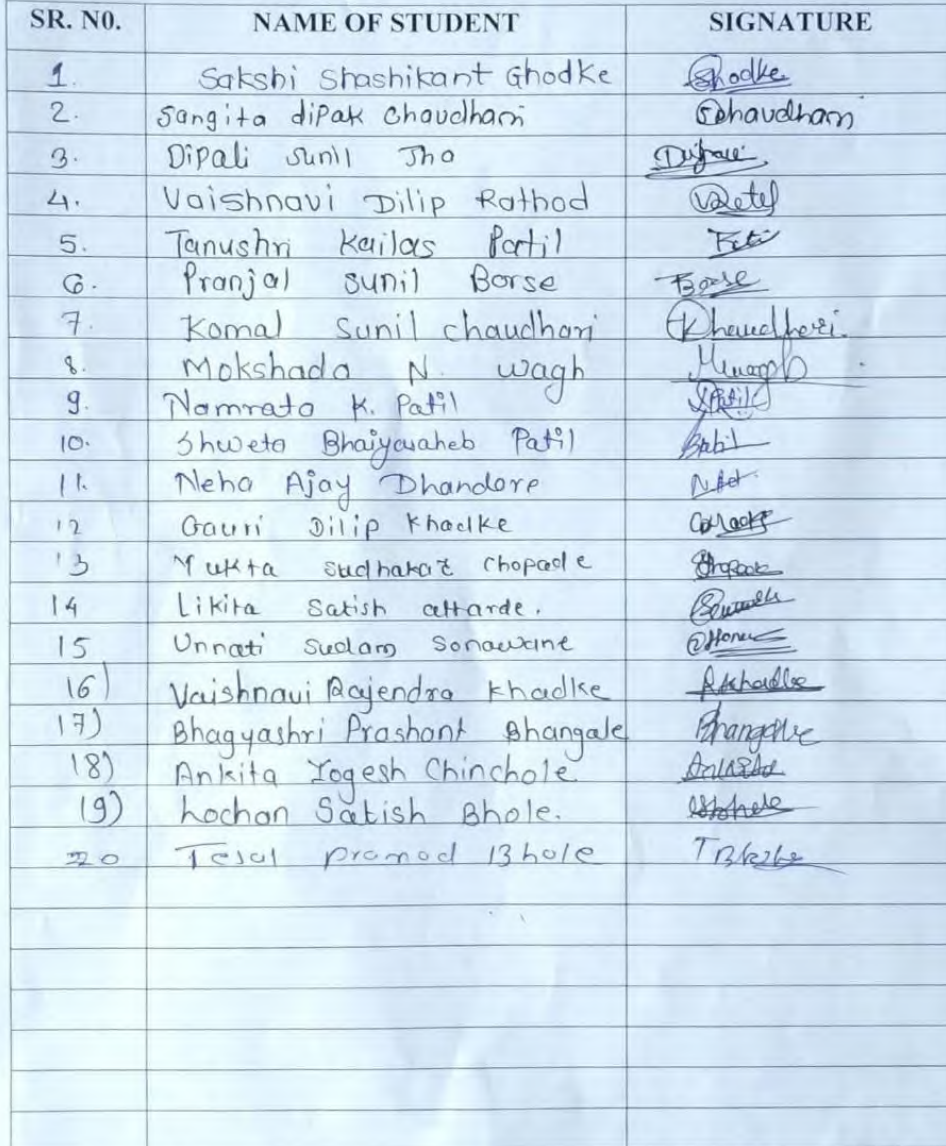 SR. N0. NAME OF STUDENT SIGNATURE
1. Sakshi Shashikant Ghodke Ghodke
2. Sangita dipak Chaudhari Schaudhari
3. Dipali Sunil Jha Dipali
4. Vaishnavi Dilip Rathod
5. Tanushri Kailas Patil
6. Pranjal Sunil Borse Borse
7. Komal Sunil chaudhari Khaudhari
8. Mokshada N. wagh
9. Namrata K. Patil Patil
10. Shweta Bhaiyasaheb Patil
11. Neha Ajay Dhandore
12 Gauri Dilip Khadke
13 Yukta Sudhakar Chopade
14 Likita Satish attarde.
15 Unnati Sudam Sonawane
16) Vaishnavi Rajendra Khadke RKhadke
17) Bhagyashri Prashant Bhangale Bhangale
18) Ankita Yogesh Chinchole
19) Lochan Satish Bhole.
20 Tejal pramod Bhole TBhole